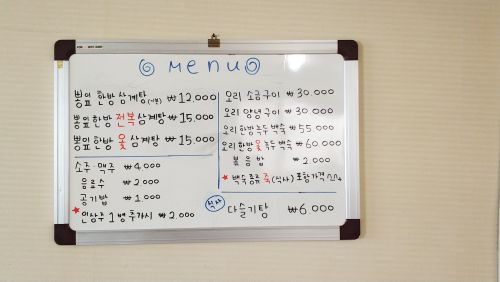 MENU
뽕잎 한방 삼계탕(기본) ₩12.000
뽕잎한방 전복삼계탕 ₩15.000
뽕잎한방 옻 삼계탕 ₩15.000
소주·맥주 ₩4.000
음료수 ₩2.000
공기밥 ₩1.000
★인삼주 1병 추가시 ₩2.000
오리 소금구이 ₩30.000
오리 양념구이 ₩30.000
오리한방녹두백숙 ₩55.000
오리한방옻녹두백숙 ₩60.000
볶음밥 ₩2.000
★백숙종류 죽(식사)포함가격
식사 다슬기탕 ₩6.000